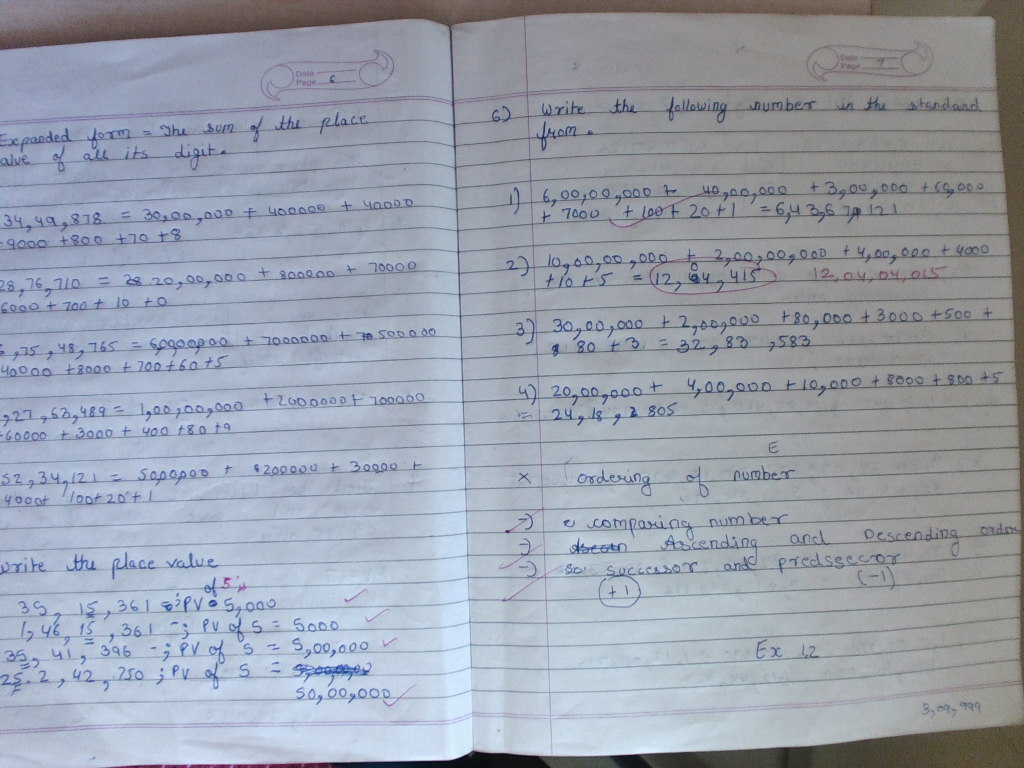 Date
Page 6
Expanded form = The sum of the place
alue of all its digit.
34,49,878 = 30,00,000 + 400000 + 40000
+9000 +800 +70 +8
28,76,710 = 20,00,000 + 800000 + 70000
6000 + 700 + 10 +0
,75,48,765 = + 7000000 + 500000
40000 +8000 +700+60+5
,27,63,489 = 1,00,00,000 +2000000+ 700000
+60000 + 3000 + 400 +80 +9
52,34,121 = 5000000 + 200000 + 30000 +
4000+ 100+20+1
write the place value
of 5's
35, 15,361 PV = 5,000
1,46,15,361 -; PV of 5 = 5000
35, 41, 396 -; PV of 5 = 5,00,000
25. 2,42,750 ; PV of 5 =
50,00,000
Date
Page 7
6) Write the following number in the standard
from.
1) 6,00,00,000 + 40,00,000 + 3,00,000 + 60,000
+ 7000 + 100 + 20 + 1 = 6,43,67,121
2) 10,00,00,000 + 2,00,00,000 + 4,00,000 + 4000
+10 +5 = 12, 04, 415 12,04,04,015
3) 30,00,000 + 2,00,000 +80,000 +3000 +500 +
80 +3 = 32,83,583
4) 20,00,000 + 4,00,000 +10,000 +8000 +800 +5
= 24,18, 805
E
x ordering of number
-) comparing number
-) Ascending and Descending order
-) successor and predssecror
(+1) (-1)
Ex 1.2
3,09,999